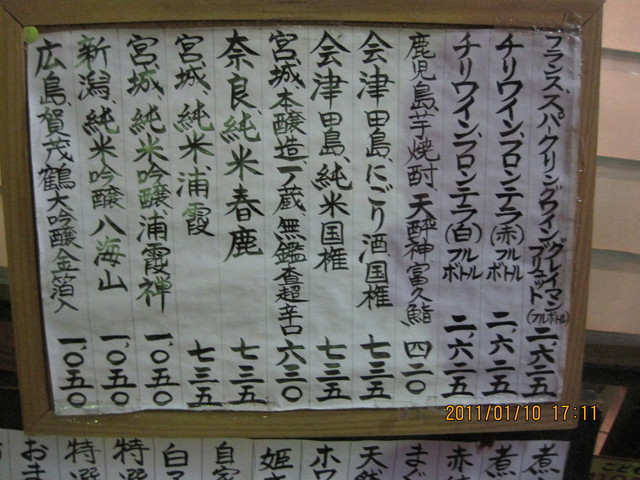 フランス、スパークリングワイン、グレイマン ブリュット(フルボトル) 二、六二五
チリワイン、フロンテラ(赤)フルボトル 二、六二五
チリワイン、フロンテラ(白)フルボトル 二、六二五
鹿児島、芋焼酎、天酔神富久鮨 四二〇
会津田島、にごり酒国権 七三五
会津田島、純米国権 七三五
宮城、本醸造一ノ蔵、無鑑査超辛口 六三〇
奈良、純米春鹿 七三五
宮城、純米浦霞 七三五
宮城、純米吟醸浦霞禅 一、〇五〇
新潟、純米吟醸八海山 一、〇五〇
広島、賀茂鶴大吟醸金箔入 一、〇五〇
煮
煮
赤
まぐ
天然
ホワ
姫
自家
白子
特選
特選
おま
2011/01/10 17:11